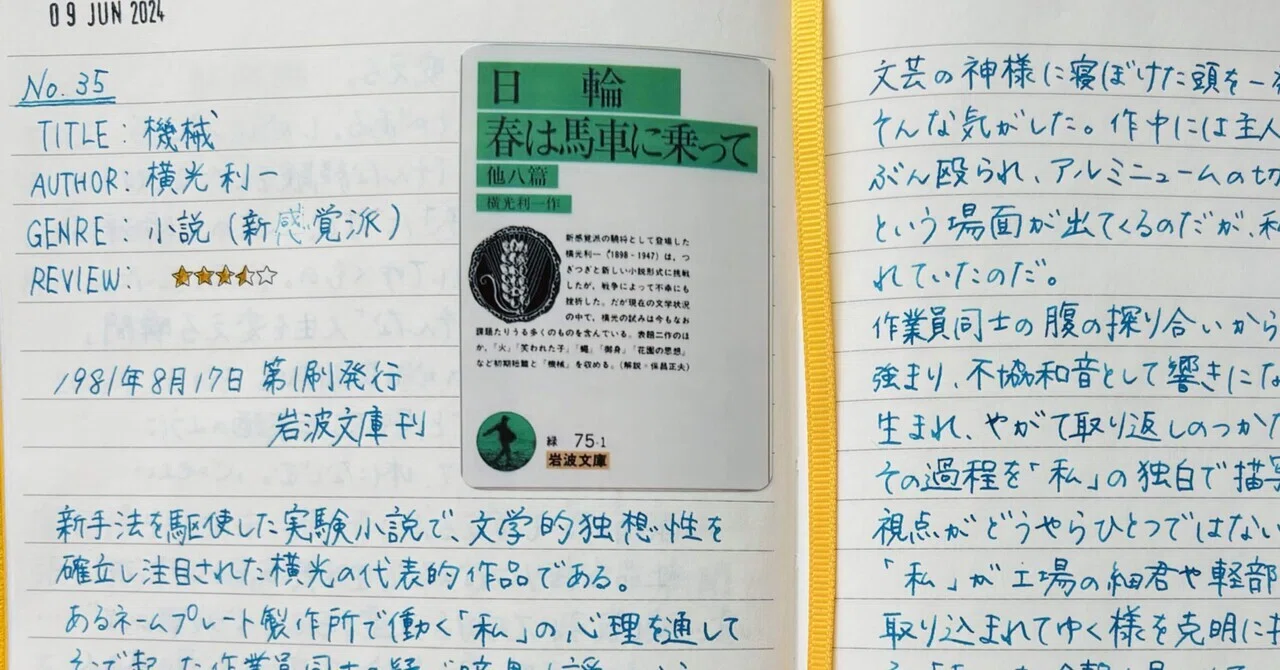 09 JUN 2024
No. 35
TITLE : 機械
AUTHOR : 横光利一
GENRE : 小説 (新感覚派)
REVIEW :
1981年8月17日 第1刷発行
岩波文庫刊
日輪
春は馬車に乗って
他八篇
横光利一作
新感覚派の驍将として登場した
横光利一(1898-1947)は、つ
ぎつぎと新しい小説形式に挑戦
したが、戦争によって不幸にも
挫折した。だが現在の文学状況
の中で、横光の試みは今もなお
課題たりうる多くのものを含んでいる。表題二作のほ
か、「火」「笑われた子」「蠅」「御身」「花園の思想」
など初期短篇と「機械」を収める。(解説=保昌正夫)
緑 75-1
岩波文庫
新手法を駆使した実験小説で、文学的独想性を
確立し注目された横光の代表的作品である。
あるネームプレート製作所で働く「私」の心理を通して
文芸の神様に寝ぼけた頭を一
そんな気がした。作中には主人
ぶん殴られ、アルミニュームの切
という場面が出てくるのだが、私
れていたのだ。
作業員同士の腹の探り合いから
強まり、不協和音として響きにな
生まれ、やがて取り返しのつかな
その過程を「私」の独白で描写
視点がどうやらひとつではない
「私」が工場の細君や軽部
取り込まれてゆく様を克明に